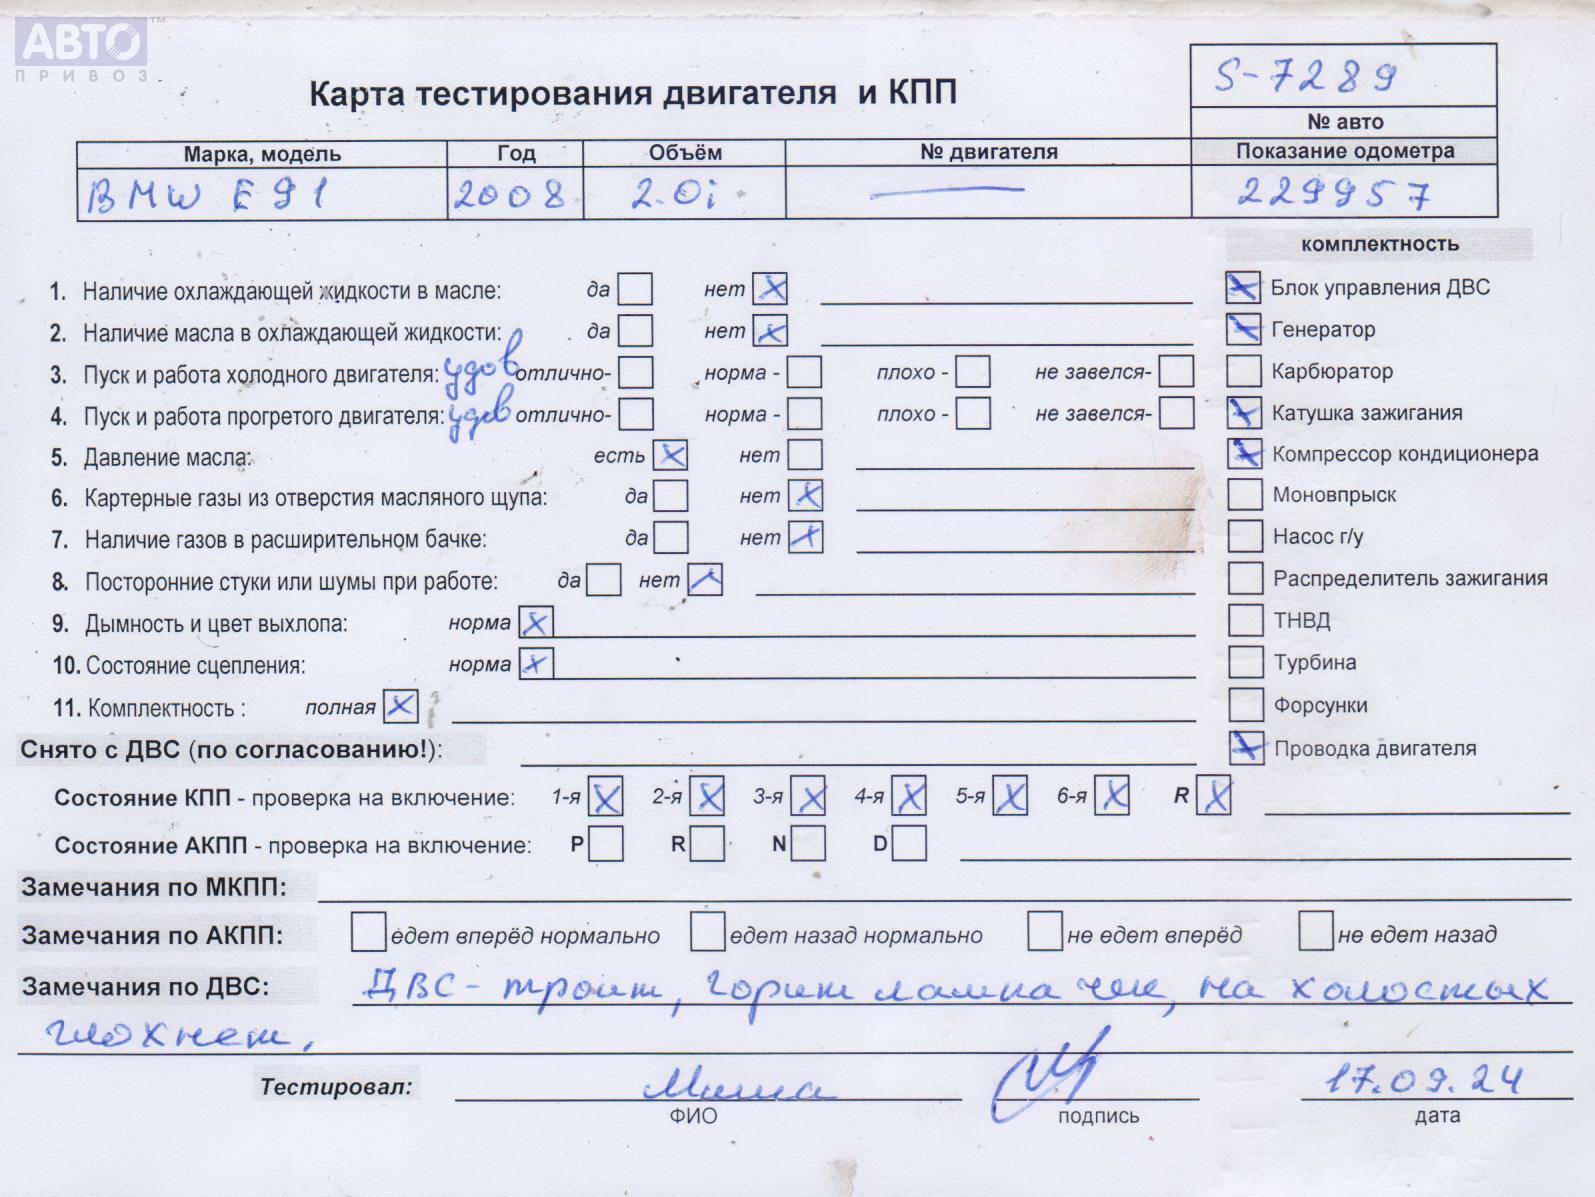 АВТО™
ПРИВОЗ
Карта тестирования двигателя и КПП
S-7289
№ авто
Марка, модель Год Объём № двигателя Показание одометра
BMW E91 2008 2.0i — 229957
комплектность
1. Наличие охлаждающей жидкости в масле: да нет X
Блок управления ДВС
2. Наличие масла в охлаждающей жидкости: да нет X
Генератор
3. Пуск и работа холодного двигателя: удов отлично- норма - плохо - не завелся-
Карбюратор
4. Пуск и работа прогретого двигателя: удов отлично- норма - плохо - не завелся-
Катушка зажигания
5. Давление масла: есть X нет
Компрессор кондиционера
6. Картерные газы из отверстия масляного щупа: да нет X
Моновпрыск
7. Наличие газов в расширительном бачке: да нет X
Насос г/у
8. Посторонние стуки или шумы при работе: да нет X
Распределитель зажигания
9. Дымность и цвет выхлопа: норма X
ТНВД
10. Состояние сцепления: норма X
Турбина
11. Комплектность : полная X
Форсунки
Снято с ДВС (по согласованию!):
Проводка двигателя
Состояние КПП - проверка на включение: 1-я X 2-я X 3-я X 4-я X 5-я X 6-я X R X
Состояние АКПП - проверка на включение: P R N D
Замечания по МКПП:
Замечания по АКПП: едет вперёд нормально едет назад нормально не едет вперёд не едет назад
Замечания по ДВС: ДВС - троит, горит лампа чек, на холостых
глохнет.
Тестировал: Миша 17.09.24
ФИО подпись дата